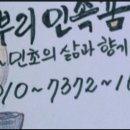 뿌리 민속품
민초의 삶과 향기
010-7372-16